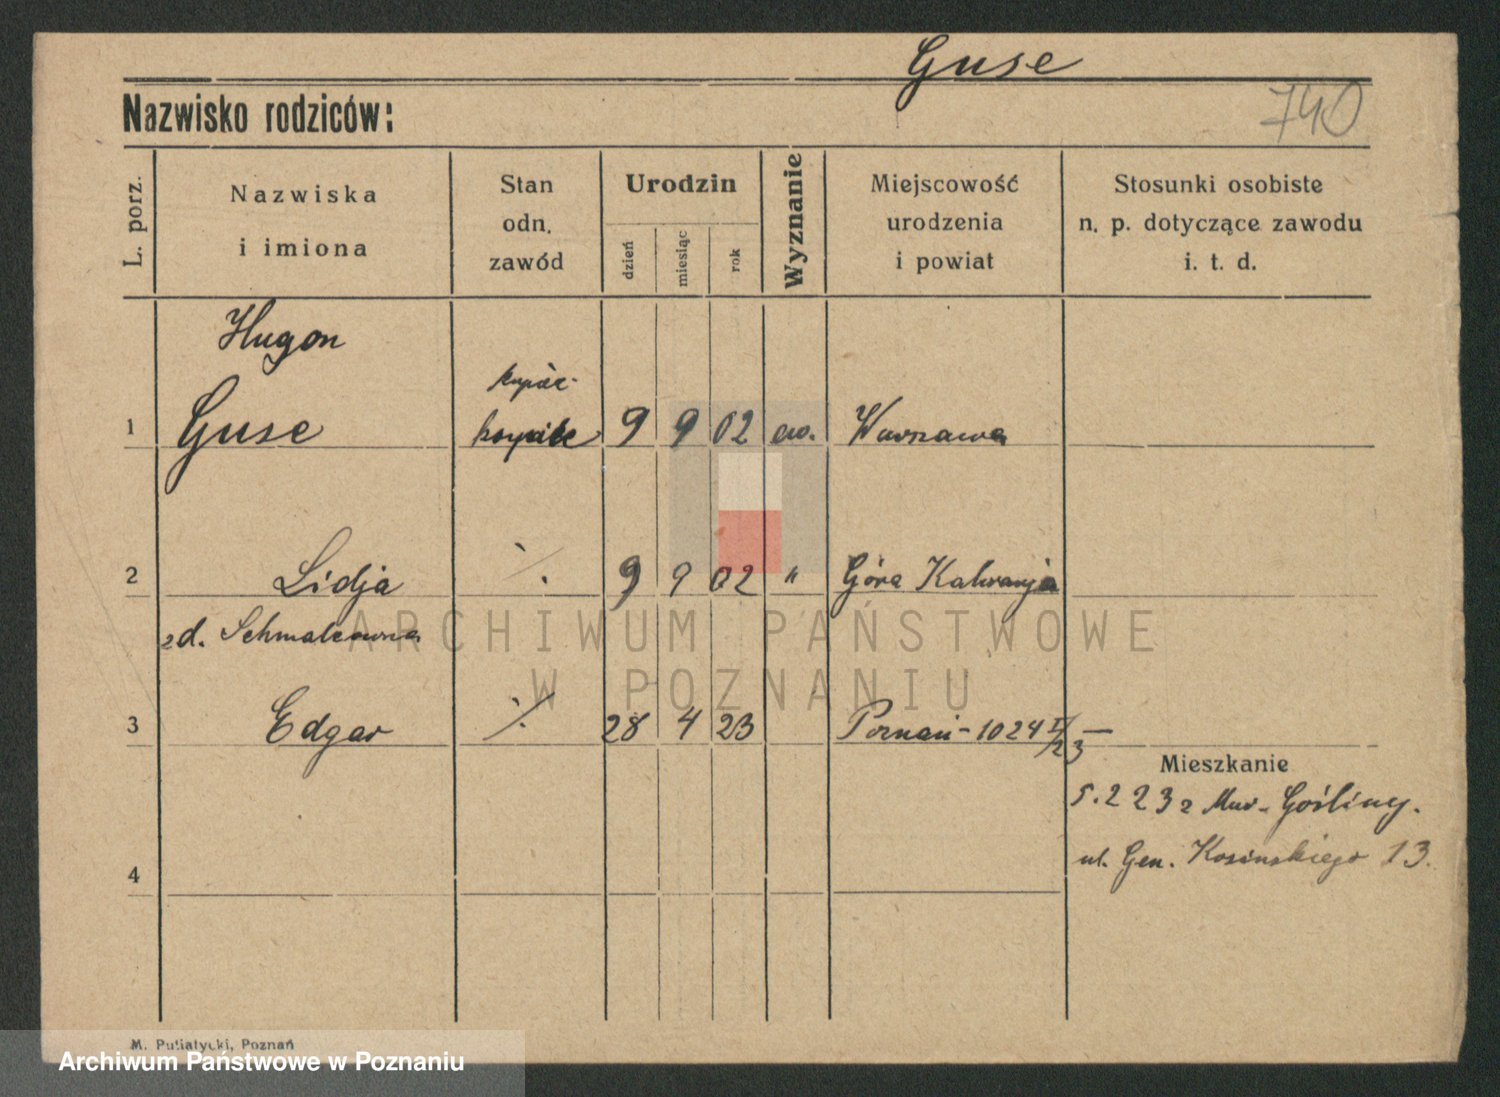 Guse
740
Nazwisko rodziców:
L. porz.
Nazwiska
i imiona
Stan
odn.
zawód
Urodzin
dzień
miesiąc
rok
Wyznanie
Miejscowość
urodzenia
i powiat
Stosunki osobiste
n. p. dotyczące zawodu
i. t. d.
Hugon
1 Guse 9 9 02 ew. Warszawa
2 Lidja ./. 9 9 02 " Góra Kalwarja
zd. Schmalcówna
3 Edgar ./. 28 4 23 Poznań - 1024 I/23 —
Mieszkanie
5. 2 23 z Mur. Gośliny.
ul. Gen. Kosinskiego 13.
4
M. Putiatycki, Poznań
ARCHIWUM PAŃSTWOWE
W POZNANIU
Archiwum Państwowe w Poznaniu